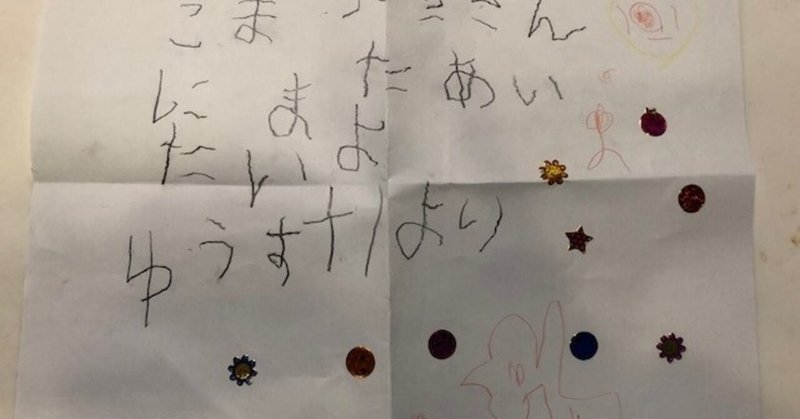 こま ん
にまたあい
たいよ
ゆうすけより